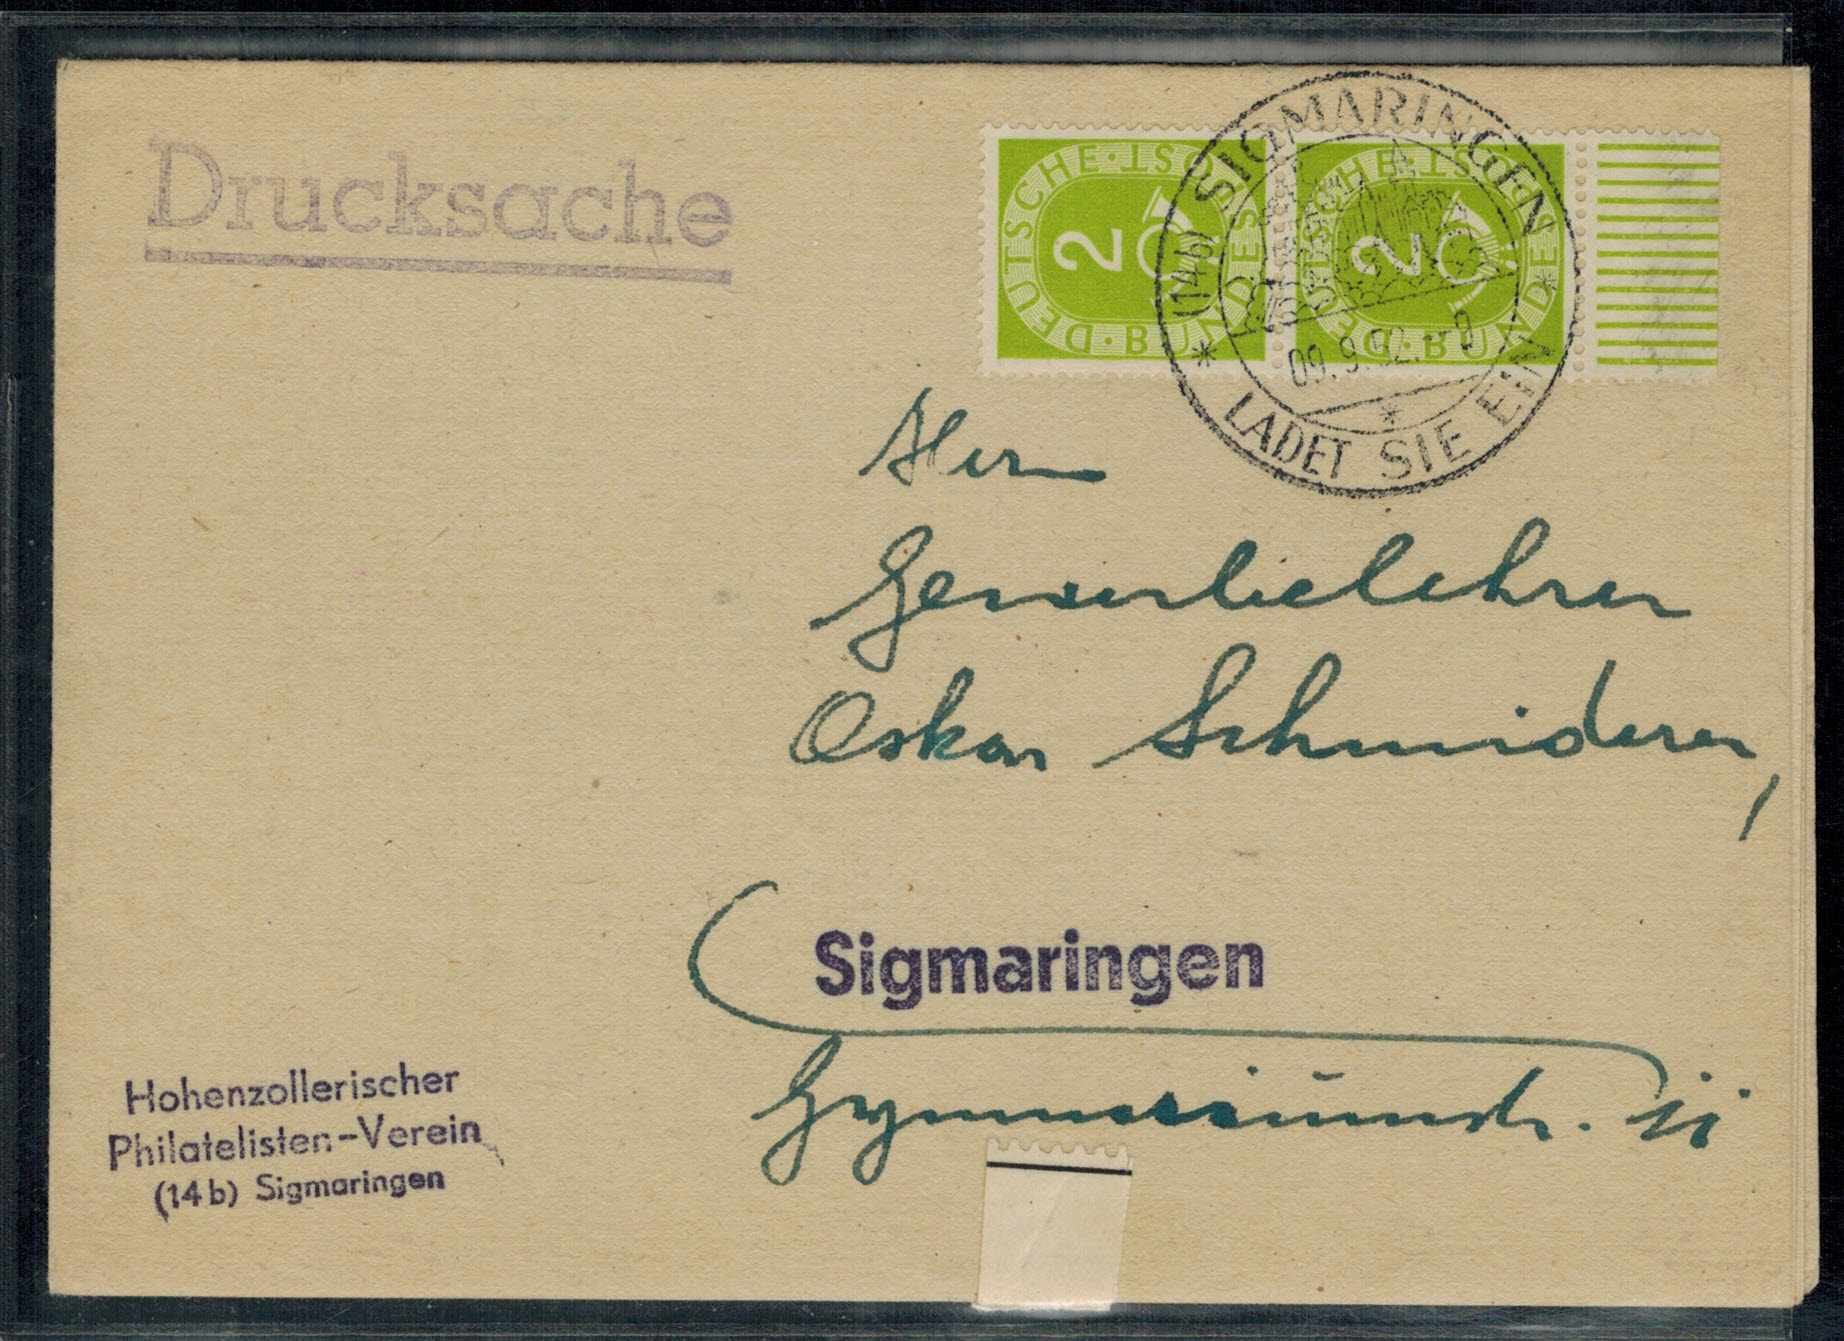 Drucksache
DEUTSCHE · BUNDESPOST
2
DEUTSCHE · BUNDESPOST
2
(14b) SIGMARINGEN
09.9.52
* LADET SIE EIN *
Herrn
Gewerbelehrer
Oskar Schmiderer,
Sigmaringen
Gymnasiumstr. 11
Hohenzollerischer
Philatelisten-Verein
(14b) Sigmaringen